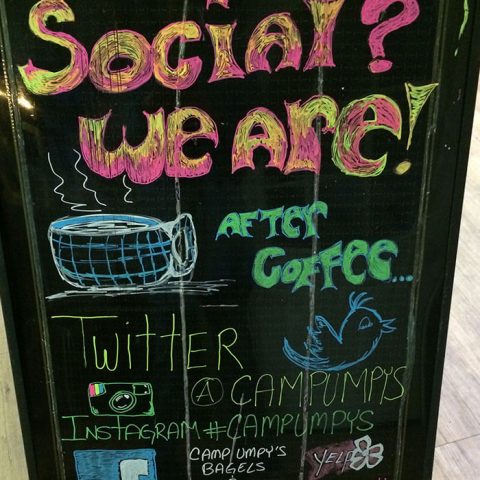 Social?
we are!
AFTER
COFFEE...
TWITTER
@CAMPUMPYS
INSTAGRAM #CAMPUMPYS
f
CAMPUMPY'S
BAGELS
YELP